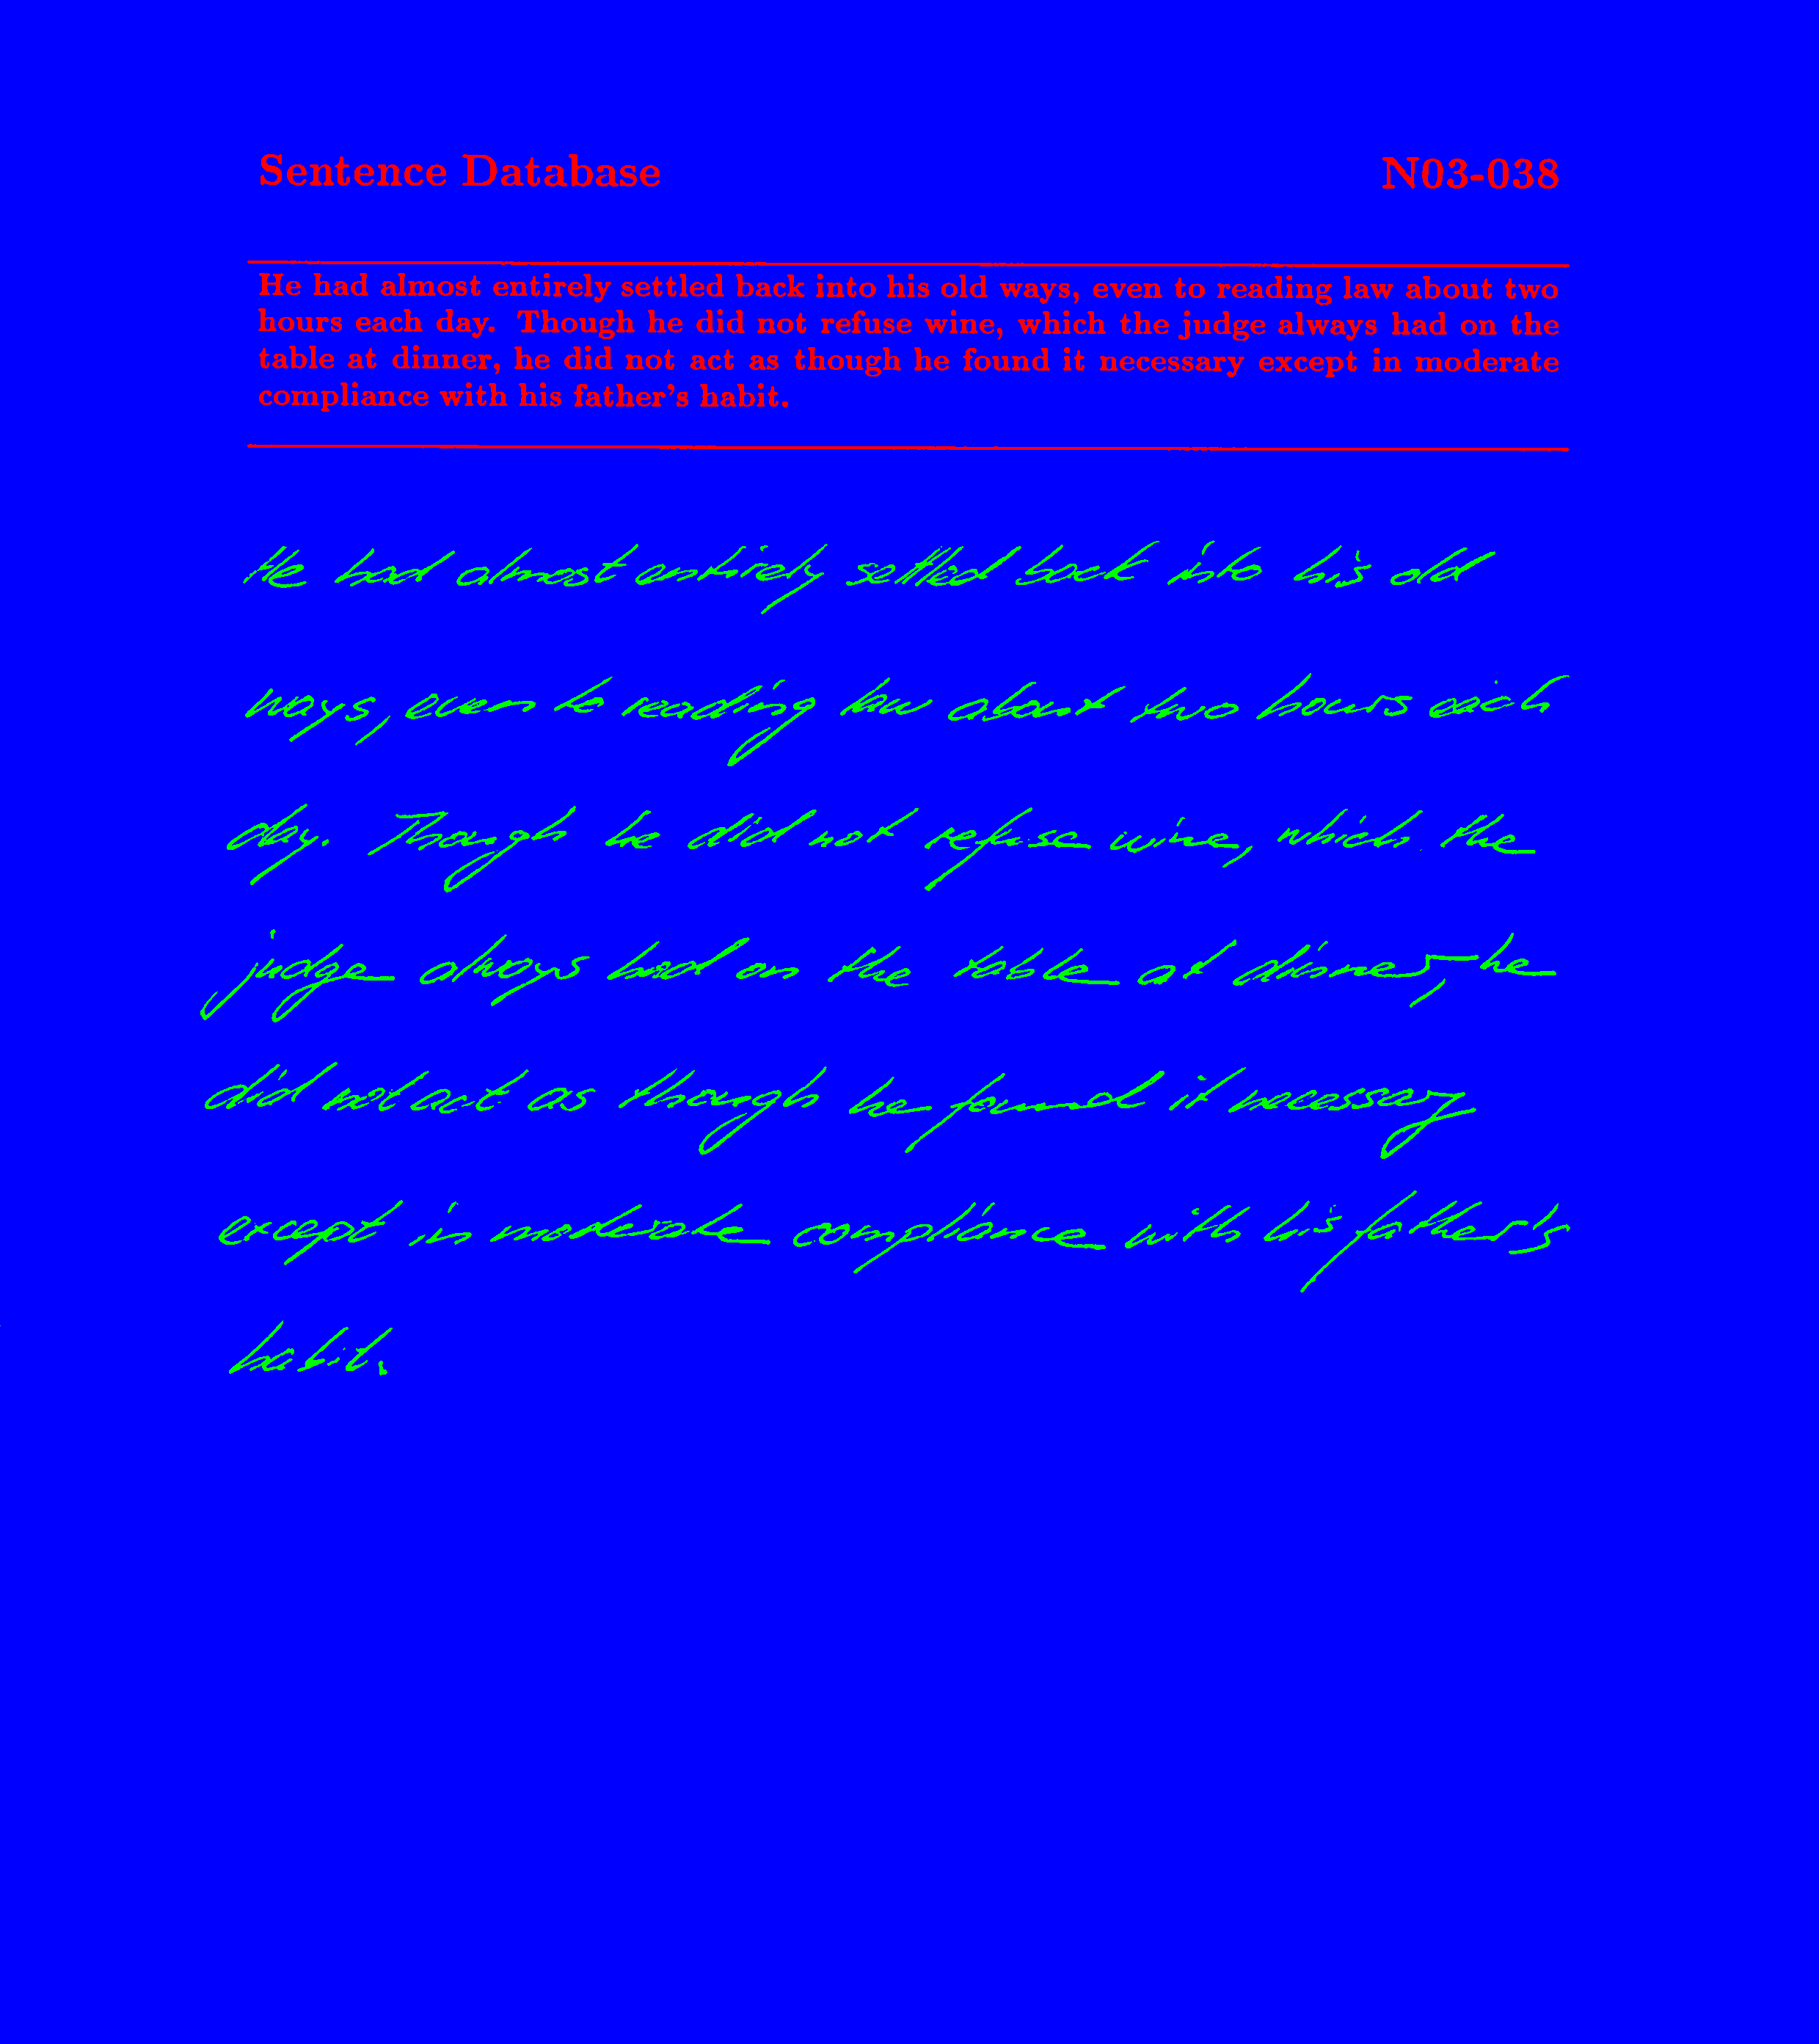 Sentence Database N03-038
He had almost entirely settled back into his old ways, even to reading law about two
hours each day. Though he did not refuse wine, which the judge always had on the
table at dinner, he did not act as though he found it necessary except in moderate
compliance with his father's habit.
He had almost entirely settled back into his old
ways, even to reading law about two hours each
day. Though he did not refuse wine, which the
judge always had on the table at dinner, he
did not act as though he found it necessary
except in moderate compliance with his father's
habit.